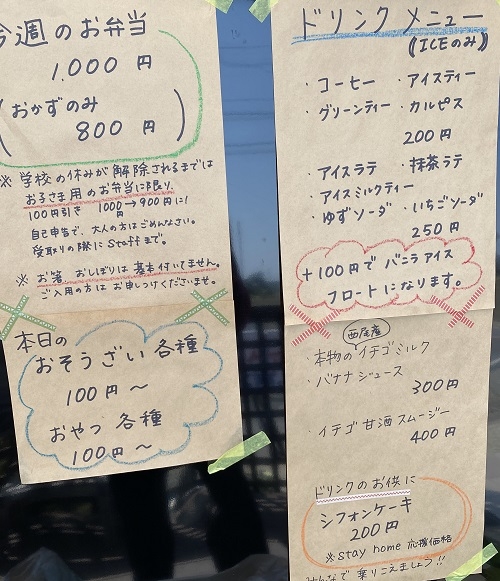 今週のお弁当
1,000 円
(おかずのみ
800 円)
※ 学校の休みが解除されるまでは
お子さま用のお弁当に限り、
100円引き 1000円→900円に!
自己申告で、大人の方はごめんなさい。
受取りの際にstaffまで。
※ お箸、おしぼりは基本付いてません。
ご入用の方はお申しつけくださいませ。
本日の
おそうざい 各種
100円〜
おやつ 各種
100円〜
ドリンク メニュー
(ICEのみ)
・コーヒー ・アイスティー
・グリーンティー ・カルピス
200円
・アイスラテ ・抹茶ラテ
・アイスミルクティー
・ゆずソーダ ・いちごソーダ
250円
+100円で バニラアイス
フロートになります。
西尾産
・本物のイチゴミルク
・バナナジュース
300円
・イチゴ甘酒スムージー
400円
ドリンクのお供に
シフォンケーキ
200円
※stay home 応援価格
みんなで乗りこえましょう!!